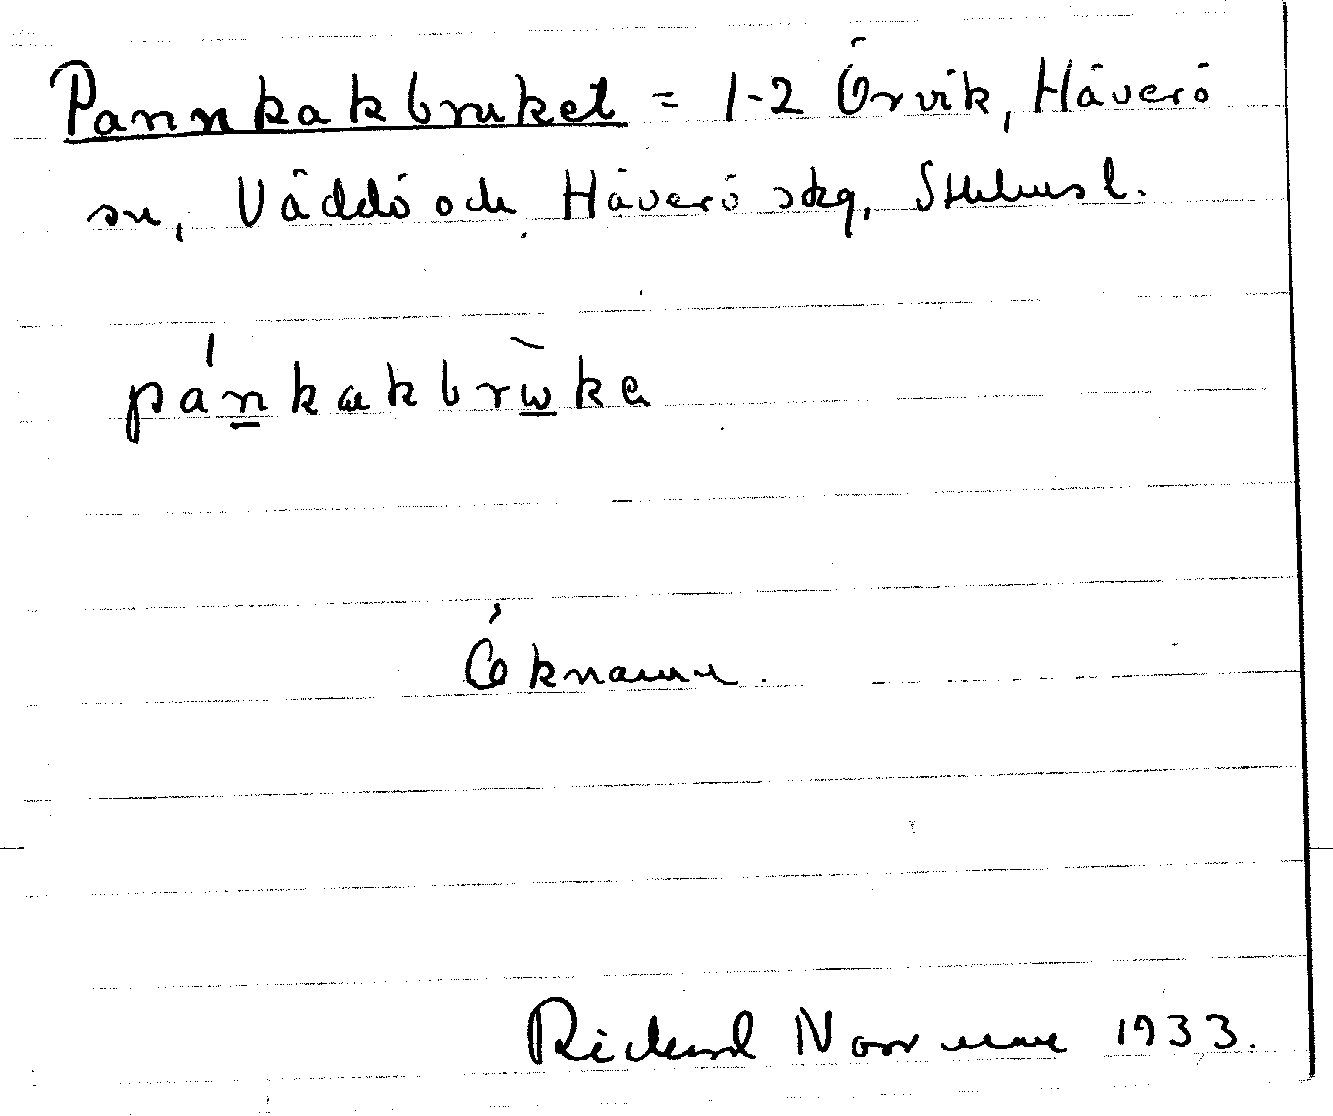 Pannkakbruket = 1-2 Örvik, Häverö
sn, Väddö och Häverö skg, Sthlms l.
pánkakbrὼke
Öknamn.
Rickard Norrman 1933.